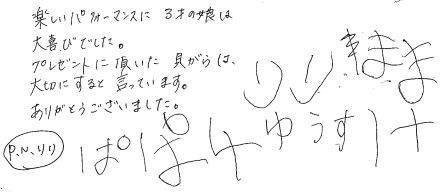 楽しいパフォーマンスに 3才の娘は
大喜びでした。
プレゼントに頂いた 貝がらは、
大切にすると 言っています。
ありがとうございました。
P.N.りり
りり まま
ぱぱ ゆうすけ